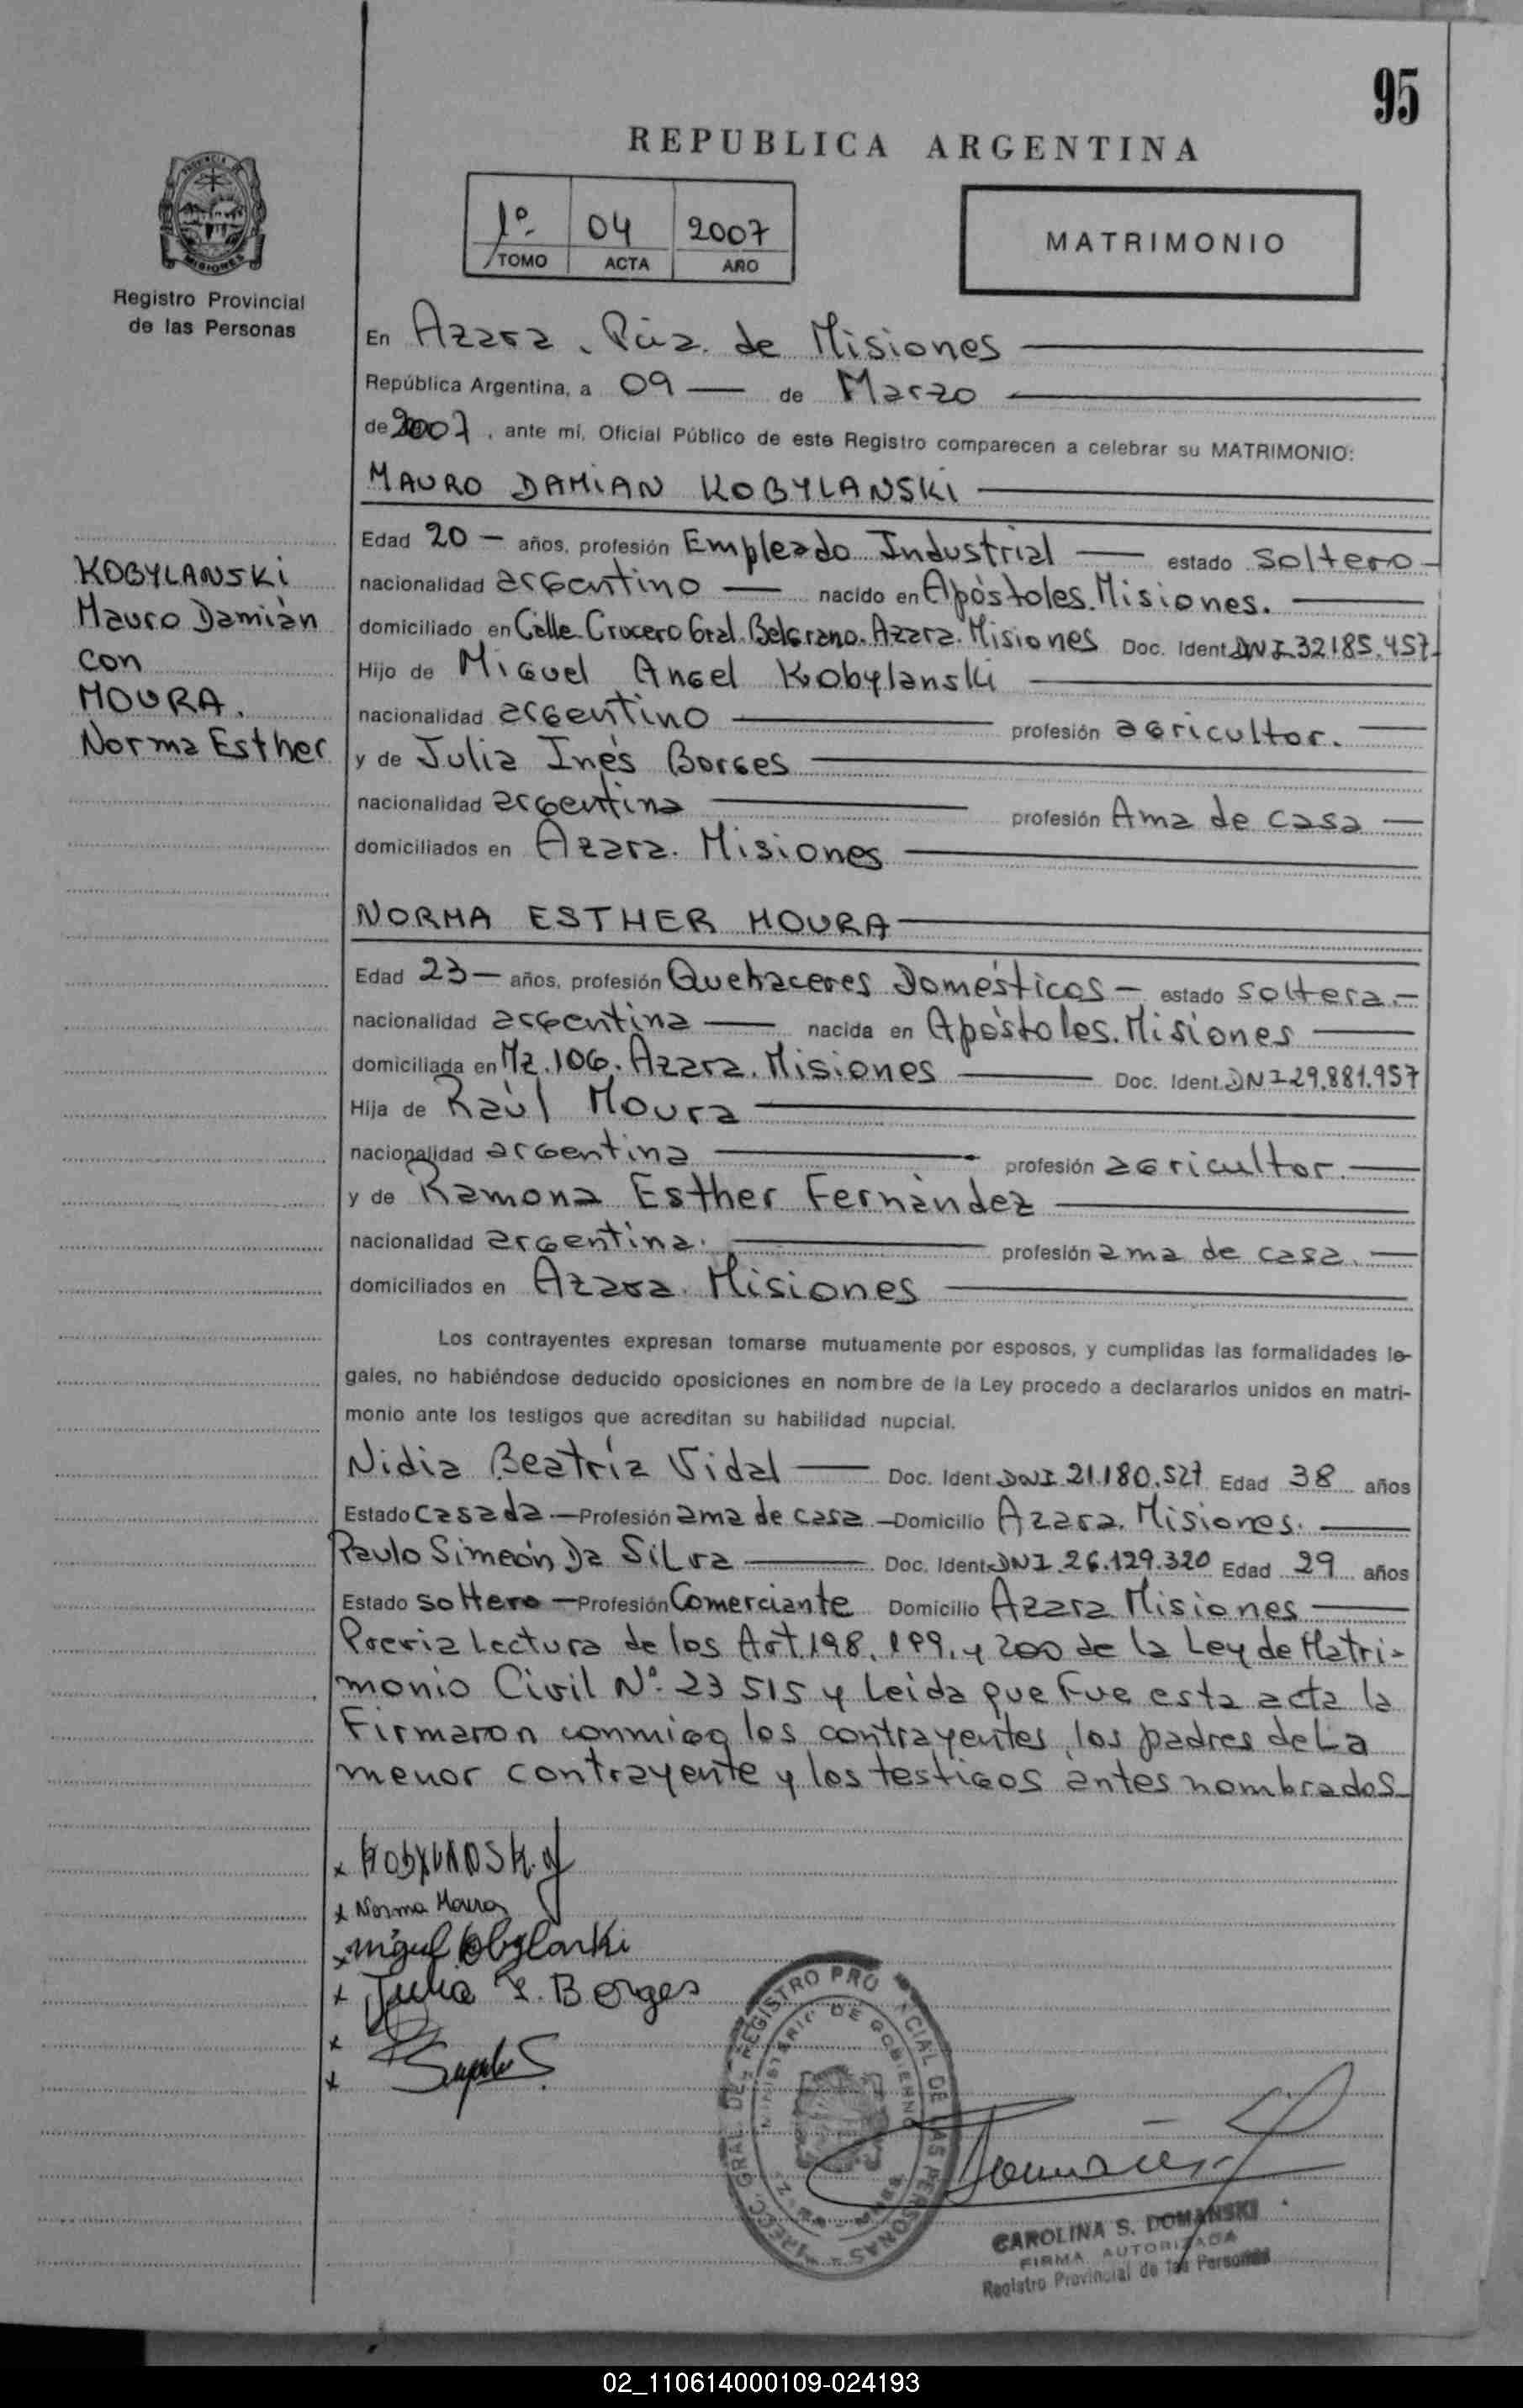 95
REPUBLICA ARGENTINA
PROVINCIA DE
MISIONES
Registro Provincial
de las Personas
1º 04 2007
TOMO ACTA AÑO
MATRIMONIO
En Azara, Pcia. de Misiones
República Argentina, a 09 de Marzo
de 2007, ante mí, Oficial Público de este Registro comparecen a celebrar su MATRIMONIO:
MAURO DAMIAN KOBYLANSKI
Edad 20 años, profesión Empleado Industrial estado soltero
nacionalidad argentino nacido en Apóstoles. Misiones.
domiciliado en Calle Crucero Gral. Belgrano. Azara. Misiones Doc. Ident. DNI 32185.457
Hijo de Miguel Angel Kobylanski
nacionalidad argentino profesión agricultor.
y de Julia Inés Borges
nacionalidad argentina profesión Ama de casa
domiciliados en Azara. Misiones
KOBYLANSKI
Mauro Damián
con
MOURA.
Norma Esther
NORMA ESTHER MOURA
Edad 23 años, profesión Quehaceres Domésticos estado soltera.
nacionalidad argentina nacida en Apóstoles. Misiones
domiciliada en Mz. 106. Azara. Misiones Doc. Ident. DNI 29.881.957
Hija de Raúl Moura
nacionalidad argentina profesión agricultor.
y de Ramona Esther Fernández
nacionalidad argentina. profesión ama de casa.
domiciliados en Azara. Misiones
Los contrayentes expresan tomarse mutuamente por esposos, y cumplidas las formalidades le-
gales, no habiéndose deducido oposiciones en nombre de la Ley procedo a declararlos unidos en matri-
monio ante los testigos que acreditan su habilidad nupcial.
Nidia Beatríz Vidal Doc. Ident. DNI 21.180.527 Edad 38 años
Estado casada.—Profesión ama de casa —Domicilio Azara. Misiones.
Paulo Simeón Da Silva Doc. Ident. DNI. 26.129.320 Edad 29 años
Estado soltero —Profesión Comerciante Domicilio Azara Misiones
Previa Lectura de los Art. 198, 199, y 200 de la Ley de Matri-
monio Civil Nº 23 515 y Leida que fue esta acta la
Firmaron conmigo los contrayentes, los padres de La
menor contrayente y los testigos antes nombrados
x Kobylansk.
x Norma Moura
x Miguel Kobylanski
x Julia I. Borges
x
x
DIRECC. GRAL. DEL REGISTRO PROVINCIAL DE LAS PERSONAS
MINISTERIO DE GOBIERNO
CAROLINA S. DOMANSKI
FIRMA AUTORIZADA
Registro Provincial de las Personas
02_110614000109-024193